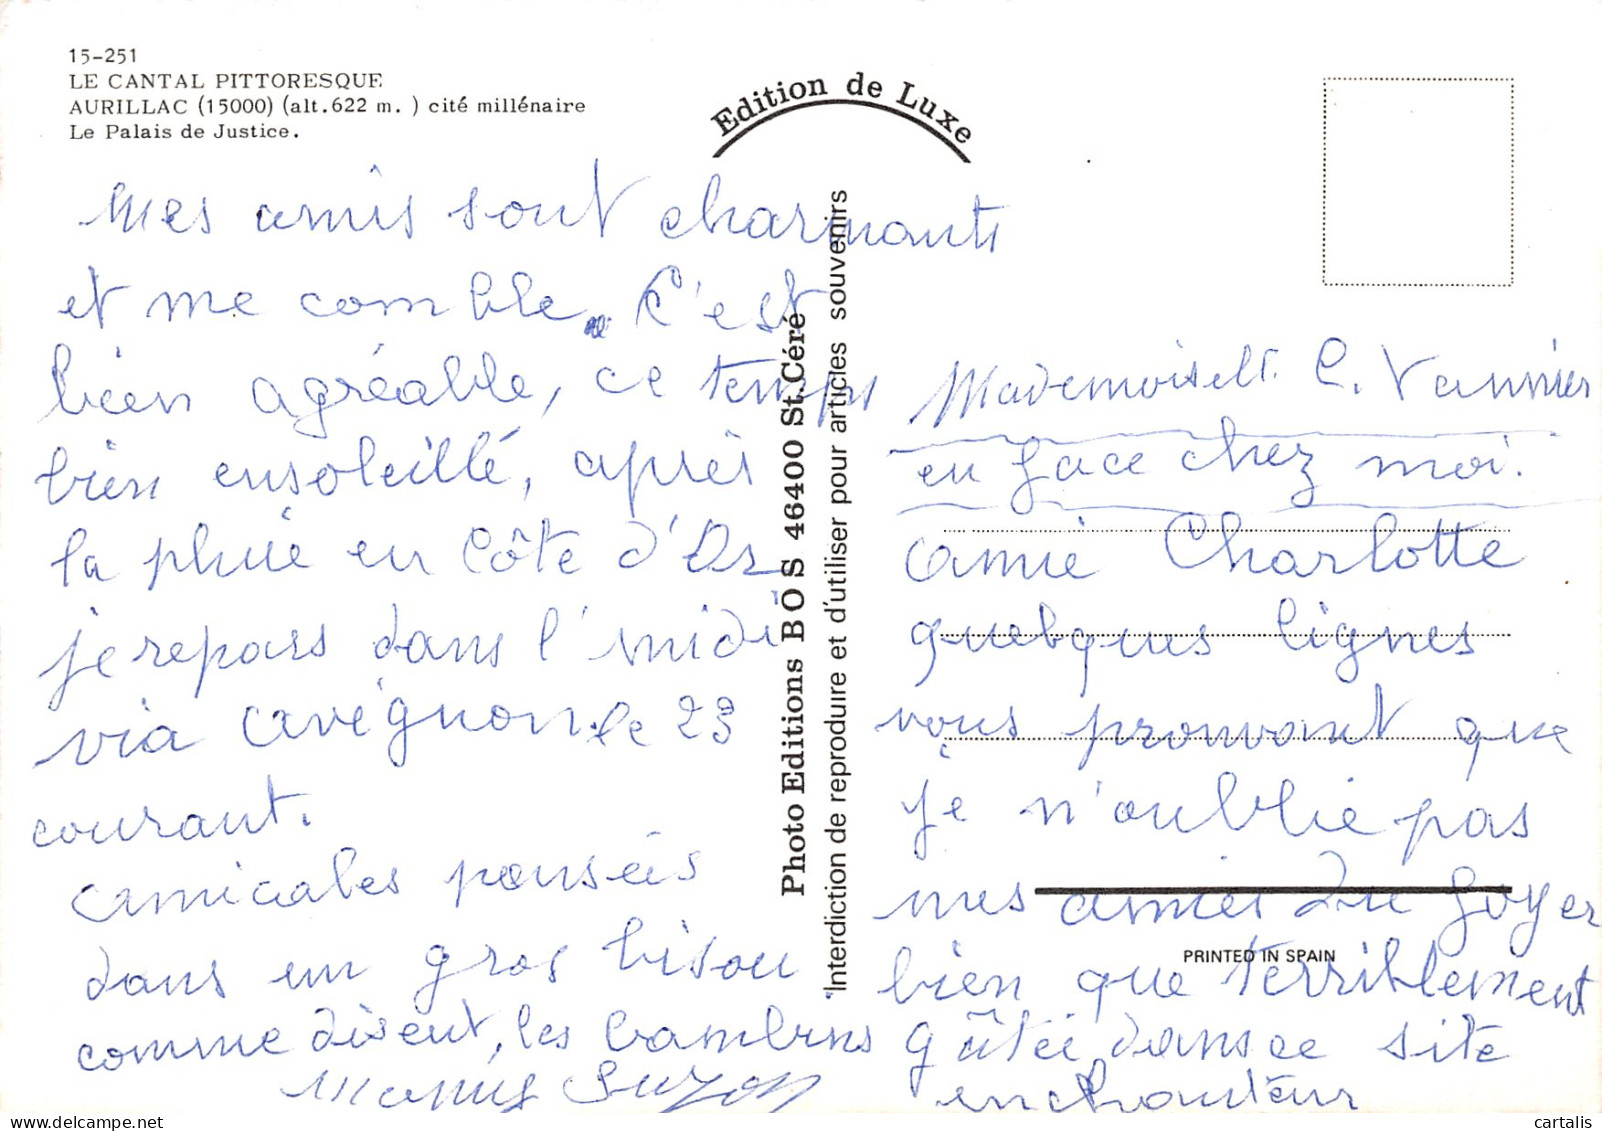 15-251
LE CANTAL PITTORESQUE
AURILLAC (15000) (alt.622 m. ) cité millénaire
Le Palais de Justice.
Edition de Luxe
Photo Editions BOS 46400 St.Céré
Interdiction de reproduire et d'utiliser pour articles souvenirs
Mademoiselle C. Vannier
en face chez moi.
amie Charlotte
quelques lignes
vous prouvant que
je n'oublie pas
mes amies du foyer
PRINTED IN SPAIN
bien que terriblement
gâtée, dans ce site
enchanteur
Mes amis sont charmants
et me comble. C'est
bien agréable, ce temps
bien ensoleillé, après
la pluie en Côte d'Or
je repars dans l'midi
via Avignon le 23
courant.
amicales penseés
dans un gros bisou
comme disent, les bambins
Suzon
cartalis
www.delcampe.net